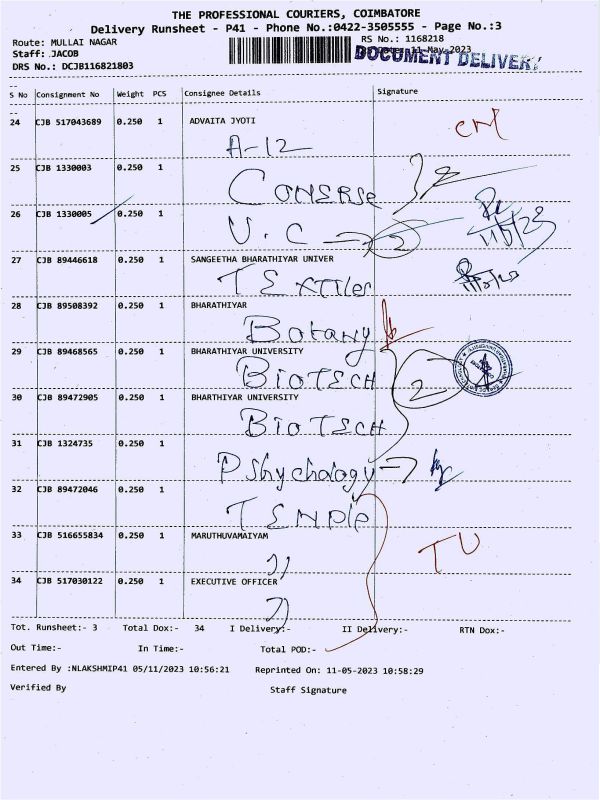 THE PROFESSIONAL COURIERS, COIMBATORE
Delivery Runsheet - P41 - Phone No.:0422-3505555 - Page No.:3
Route: MULLAI NAGAR RS No.: 1168218
Staff: JACOB Date: 11-May-2023
DOCUMENT DELIVERY
DRS No.: DCJB116821803
S No Consignment No Weight PCS Consignee Details Signature
24 CJB 517043689 0.250 1 ADVAITA JYOTI
A-12
25 CJB 1330003 0.250 1
26 CJB 1330005 0.250 1
U.C 2
11/5/23
27 CJB 89446618 0.250 1 SANGEETHA BHARATHIYAR UNIVER
TEXTTiles
28 CJB 89508392 0.250 1 BHARATHIYAR
Botany
29 CJB 89468565 0.250 1 BHARATHIYAR UNIVERSITY
BioTECH 2
30 CJB 89472905 0.250 1 BHARTHIYAR UNIVERSITY
BioTECH
31 CJB 1324735 0.250 1
Pshychology
32 CJB 89472046 0.250 1
TEMPle
33 CJB 516655834 0.250 1 MARUTHUVAMAIYAM
TU
34 CJB 517030122 0.250 1 EXECUTIVE OFFICER
Tot. Runsheet:- 3 Total Dox:- 34 I Delivery:- II Delivery:- RTN Dox:-
Out Time:- In Time:- Total POD:-
Entered By :NLAKSHMIP41 05/11/2023 10:56:21 Reprinted On: 11-05-2023 10:58:29
Verified By Staff Signature